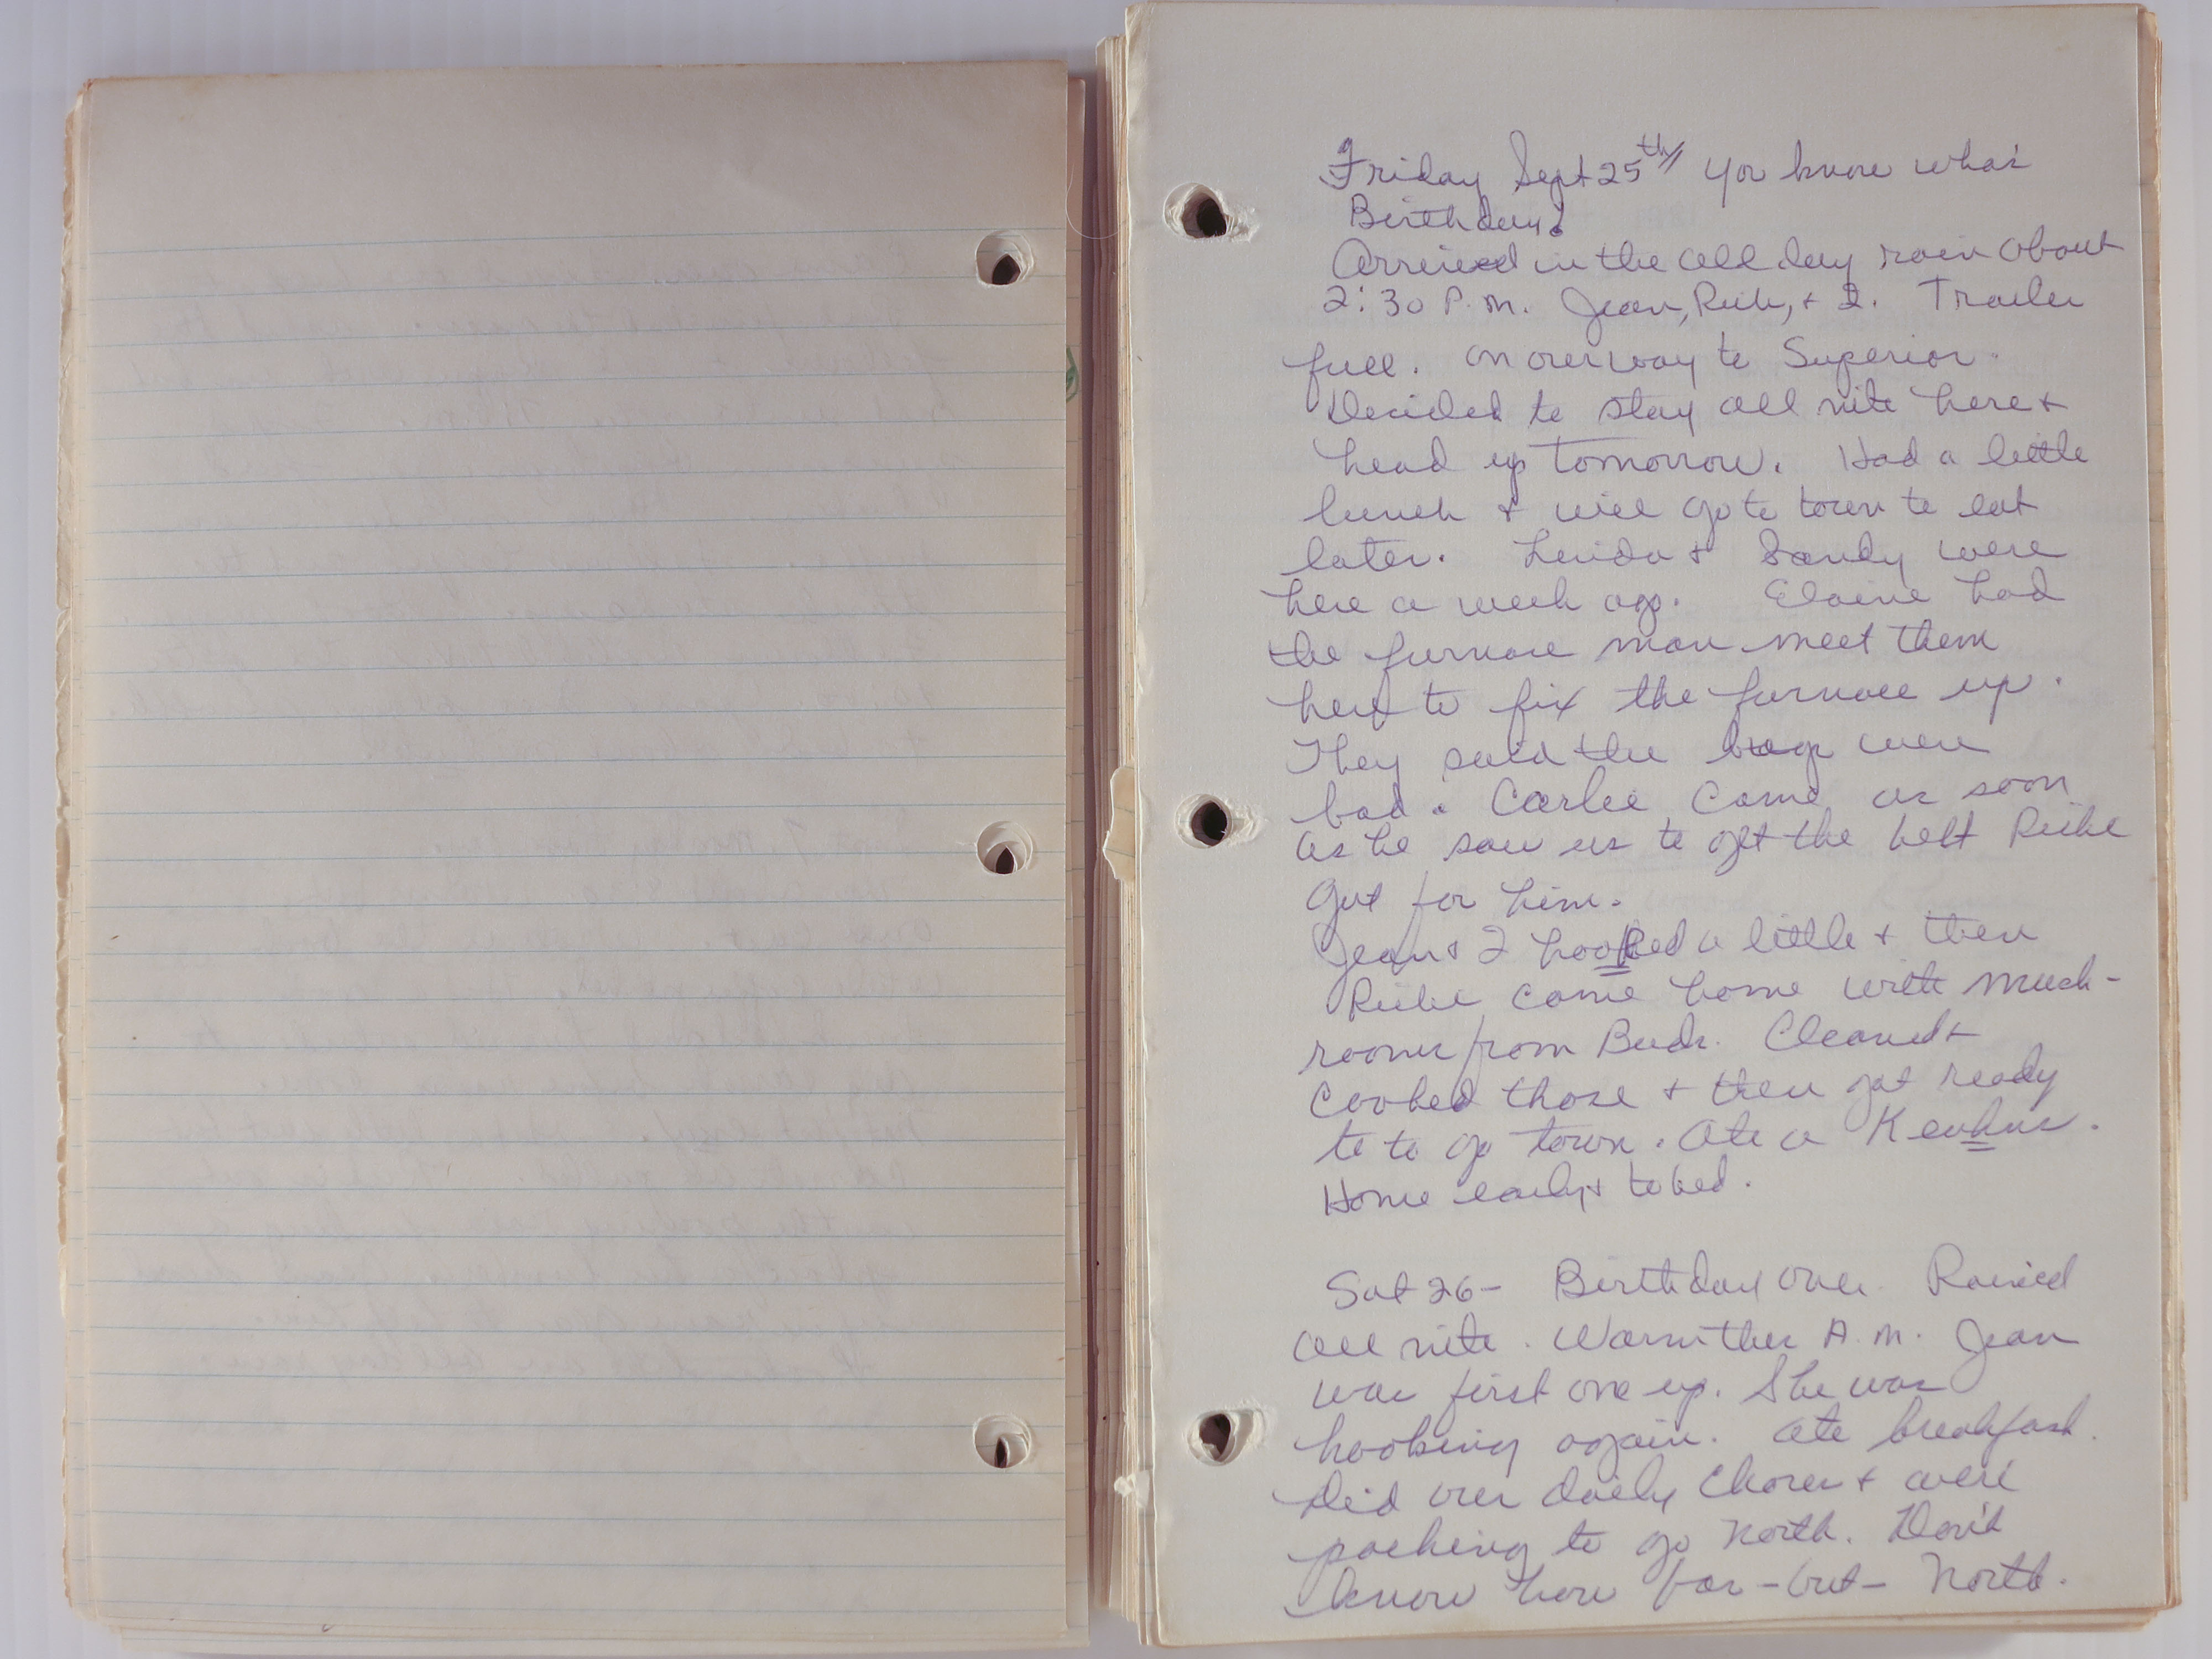 Friday Sept 25th you know who's
Birthday!
Arrived in the all day rain about
2:30 P.M. Jean, Rich, & I. Trailer
full. On our way to Superior.
Decided to stay all nite here &
head up tomorrow. Had a little
lunch & will go to town to eat
later. Linda & Sandy were
here a week ago. Elaine had
the furnace man meet them
here to fix the furnace up.
They said the were
bad. Carlie came as soon
as he saw us to get the belt Riche
got for him.
Jean & I hooked a little & then
Riche came home with mush-
rooms from Buds. Cleaned &
cooked those & then got ready
to to go town. Ate a
Home early & to bed.
Sat 26 - Birthday over. Rained
all nite. Warm this A.M. Jean
was first one up. She was
hooking again. Ate breakfast.
Did our daily chores & were
packing to go North. Don't
know how far - but - North.